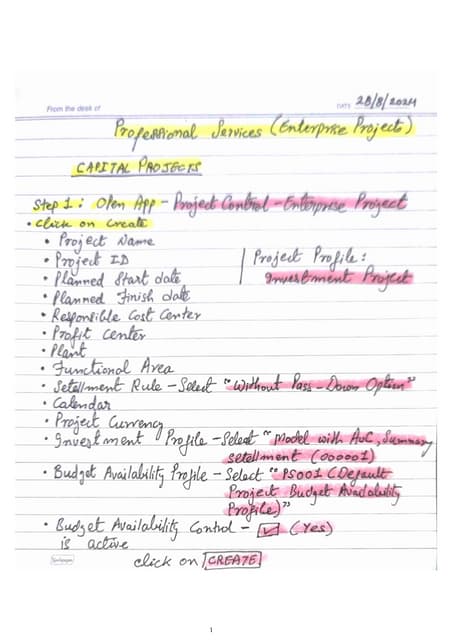 From the desk of
DATE 28/8/2024
Professional Services (Enterprise Projects)
CAPITAL PROJECTS
Step 1: Open App - Project Control - Enterprise Project
• click on create
• Project Name
• Project ID | Project Profile:
• Planned Start date | Investment Project
• Planned Finish date
• Responsible Cost Center
• Profit Center
• Plant
• Functional Area
• Setellment Rule - Select "Without Pass-Down Option"
• Calendar
• Project Currency
• Investment Profile - Select "Model with AuC, Summary
setellment (000001)
• Budget Availability Profile - Select "PS001 (Default
Project Budget Availability
Profile)"
• Budget Availability Control - ☑ (Yes)
is active
click on CREATE
1